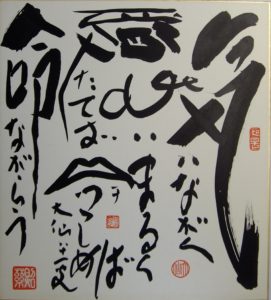 気はながく
心はまるく
腹たてず
口ヲつつしめば
命ながらう